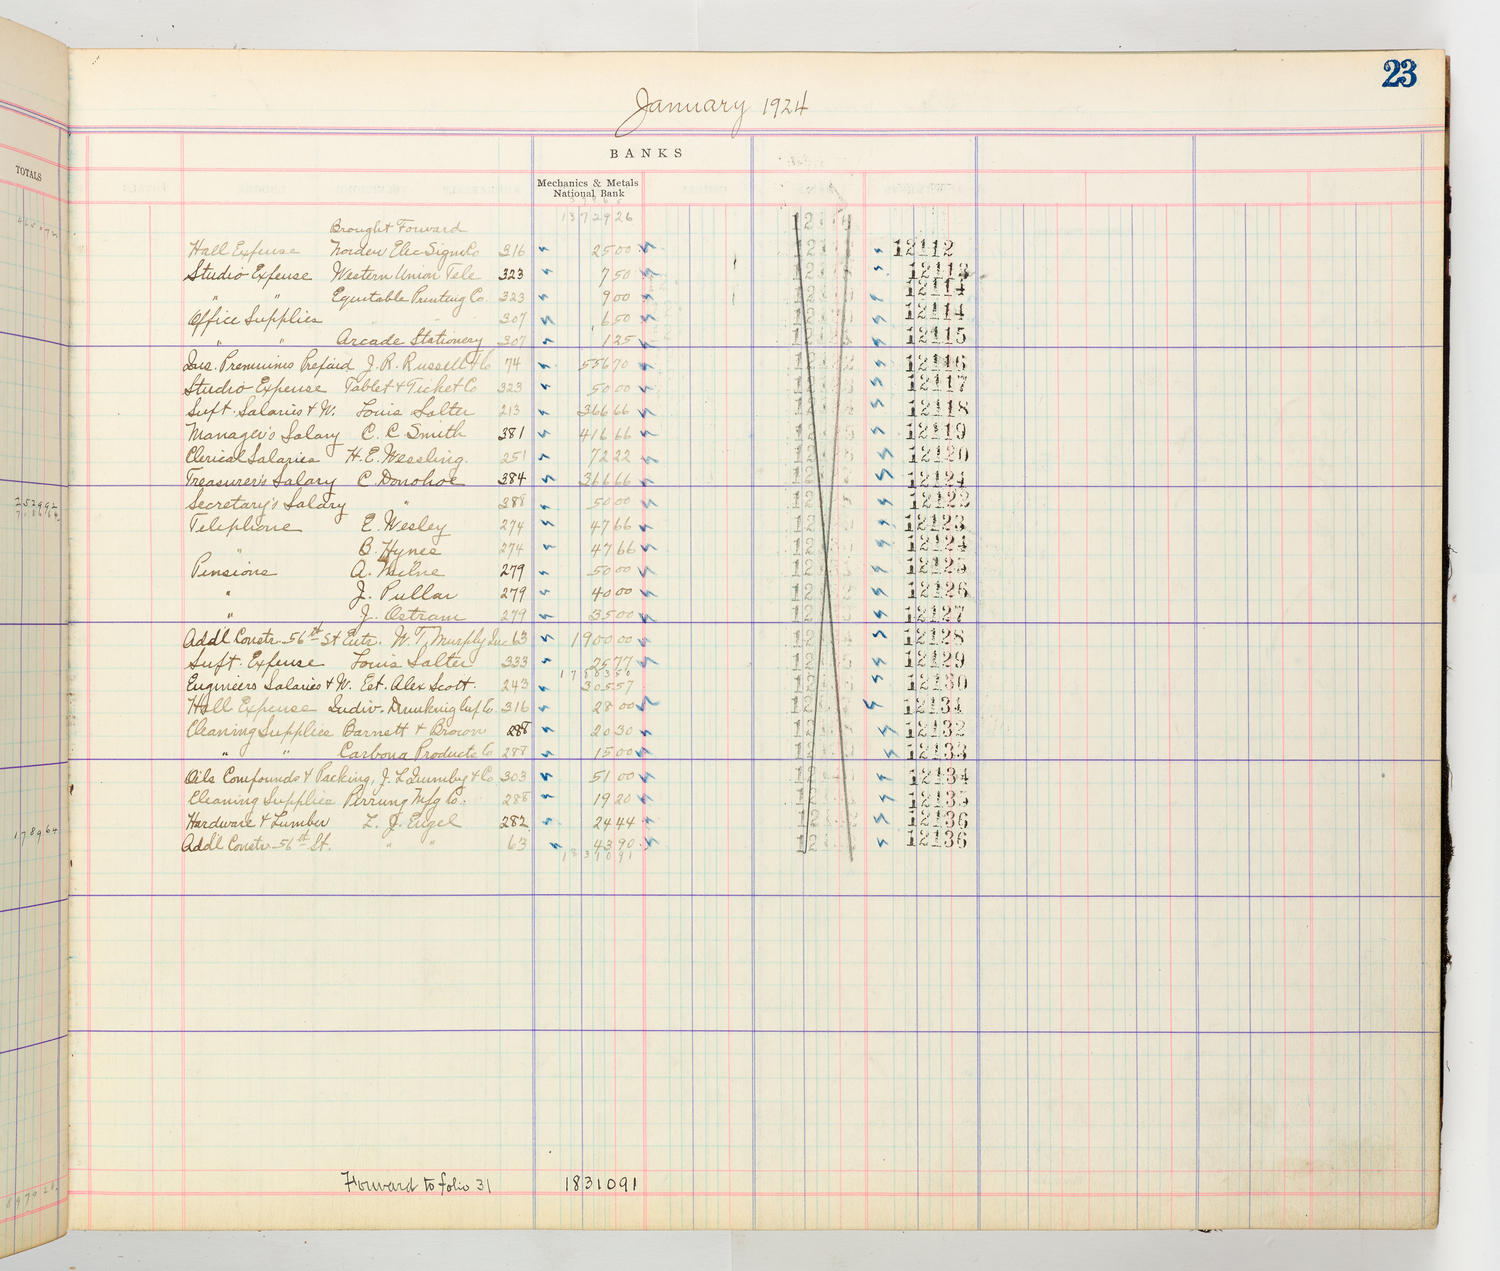 23
January 1924
TOTALS
BANKS
Mechanics & Metals
National Bank
Brought Forward 13729 26
Hall Expense Norden Elec Sign Co 316 25 00 12112
Studio Expense Western Union Tele 323 7 50 12113
" " Equitable Printing Co. 323 9 00 12114
Office Supplies " " 307 6 50 12114
" " Arcade Stationery 307 1 25 12115
Ins. Premiums Prepaid J. R. Russell & Co 74 556 70 12116
Studio Expense Tablet & Ticket Co 323 50 00 12117
Supt. Salaries & W. Louis Salter 213 366 66 12118
Manager's Salary C. C. Smith 381 416 66 12119
Clerical Salaries H. E. Wessling. 251 72 22 12120
Treasurer's Salary C. Donohoe 384 366 66 12121
Secretary's Salary " 388 50 00 12122
Telephone E. Wesley 274 47 66 12123
" B. Hynes 274 47 66 12124
Pensions A. Milne 279 50 00 12125
" J. Pullar 279 40 00 12126
" J. Ostram 279 35 00 12127
Addl Constr. 56th St Entr. W. T. Murphy Inc 63 1900 00 12128
Supt. Expense Louis Salter 333 25 77 12129
Engineers Salaries & W. Est. Alex Scott. 243 305 57 12130
Hall Expense Indiv. Drinking Cup Co. 316 28 00 12131
Cleaning Supplies Barnett & Brown 288 20 30 12132
" " Carbona Products Co 288 15 00 12133
Oils Compounds & Packing, J. L. Quimby & Co. 303 51 00 12134
Cleaning Supplies Perrung Mfg Co. 288 19 20 12135
Hardware & Lumber L. J. Engel 282 24 44 12136
Addl Constr. 56th St. " " 63 43 90 12136
18310 91
Forward to folio 31 18310 91